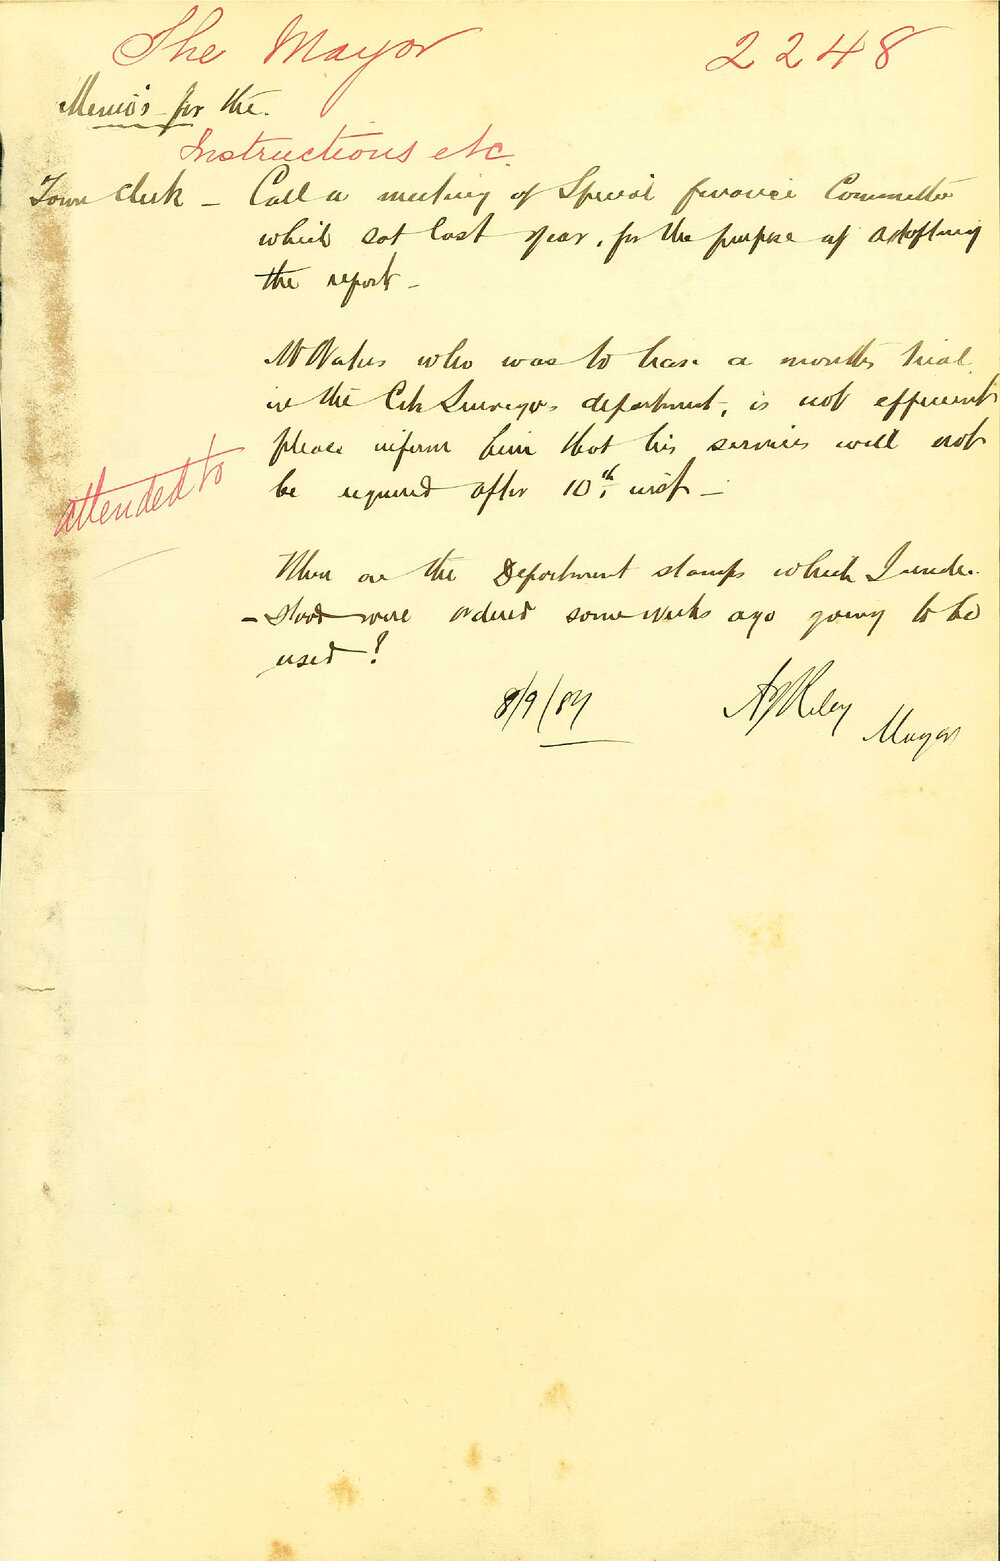 The Mayor 2248
Memo's for the.
Instructions etc.
Town Clerk - Call a meeting of Special finance Committee
which sat last year, for the purpose of adopting
the report -
Mr who was to have a months trial
in the City Surveyors department, is not efficient
please inform him that his services will not
be required after 10th. inst -
attended to
When are the Department stamps which I under-
- stood were ordered some weeks ago going to be
used?
8/9/87 Riley
Mayor